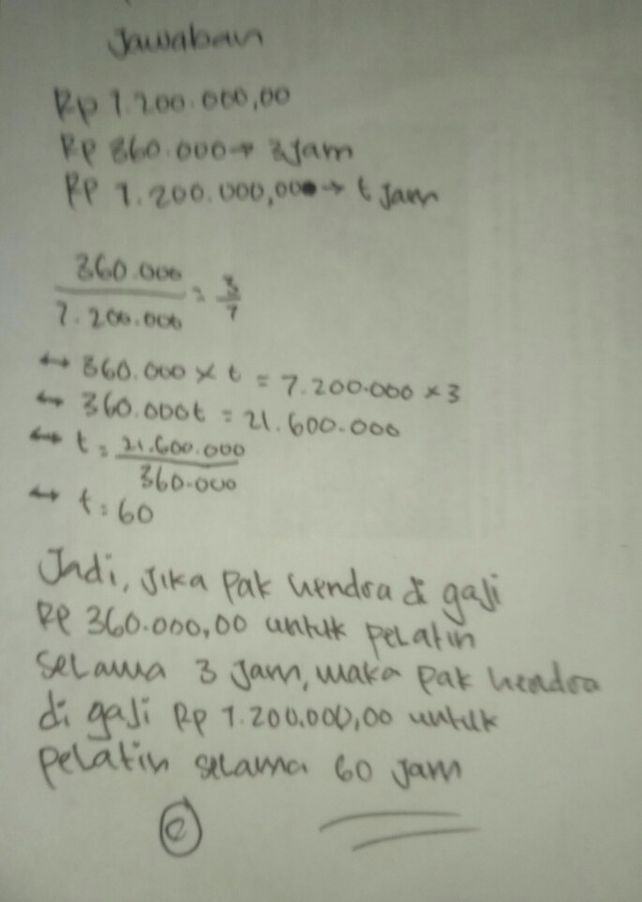 Jawaban
Rp 7.200.000,00
Rp 360.000 → 3 Jam
Rp 7.200.000,00 → t Jam
360.000 / 7.200.000 = 3/7
↔ 360.000 × t = 7.200.000 × 3
↔ 360.000t = 21.600.000
↔ t = 21.600.000 / 360.000
↔ t = 60
Jadi, Jika Pak Hendra di gaji
Rp 360.000,00 untuk Pelatih
Selama 3 Jam, maka Pak Hendra
di gaji Rp 7.200.000,00 untuk
Pelatih selama 60 Jam
(e)